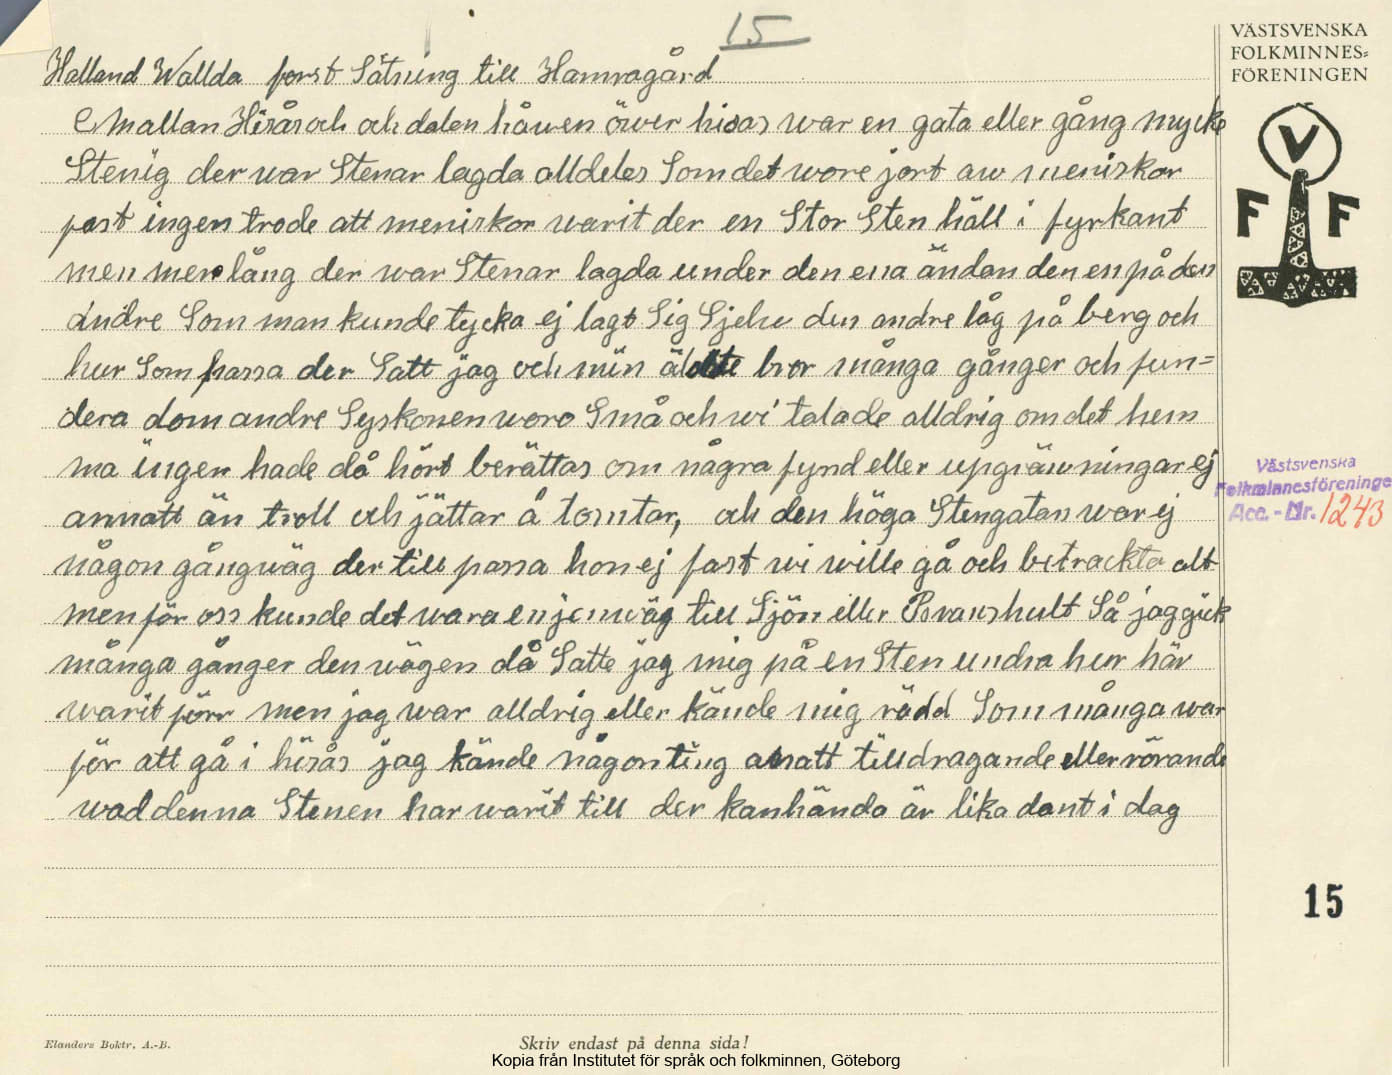 15
VÄSTSVENSKA
FOLKMINNES=
FÖRENINGEN
V
F F
Halland Wallda forst Sätning till Hamragård
Emallan Hisås och och dalen håwen öwer hisas war en gata eller gång mycke
Stenig der war Stenar lagda alldeles Som det wore jort aw meniskor
fast ingen trode att meniskor warit der en Stor Sten häll i fyrkant
men mer lång der war Stenar lagda under den ena ändan den en på den
andre Som man kunde tycka ej lagt Sig Sjelw den andre låg på berg och
hur Som passa der Satt jag och min äldste bror många gånger och fun=
dera dom andre Syskonen woro Små och wi talade alldrig om det hem
ma ingen hade då hört berättas om några fynd eller upgräwningar ej
annatt än troll och jättar å tomtar, och den höga Stengatan war ej
någon gångwäg der till passa hon ej fast wi wille gå och betrackta alt
men för oss kunde det wara en jenwäg till Sjön eller Såjaggick
många gånger den wägen då Satte jag mig på en Sten undra hur här
warit förr men jag war alldrig eller kände mig rädd Som många war
för att gå i hisås jag kände någonting anatt tilldragande eller rörande
wad denna Stenen har warit till der kanhända är lika dant i dag
Västsvenska
Folkminnesföreningen
Acc. - Nr. 1243
15
Elanders Boktr. A.-B.
Skriv endast på denna sida!
Kopia från Institutet för språk och folkminnen, Göteborg